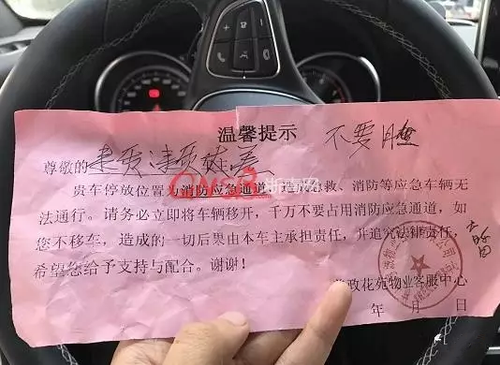 温馨提示 不要脸
尊敬的
贵车停放位置为消防应急通道，造成急救、消防等应急车辆无
法通行。请务必立即将车辆移开，千万不要占用消防应急通道，如
您不移车，造成的一切后果由本车主承担责任，并追究法律责任，
希望您给予支持与配合。谢谢！
政花苑物业客服中心
年 月 日